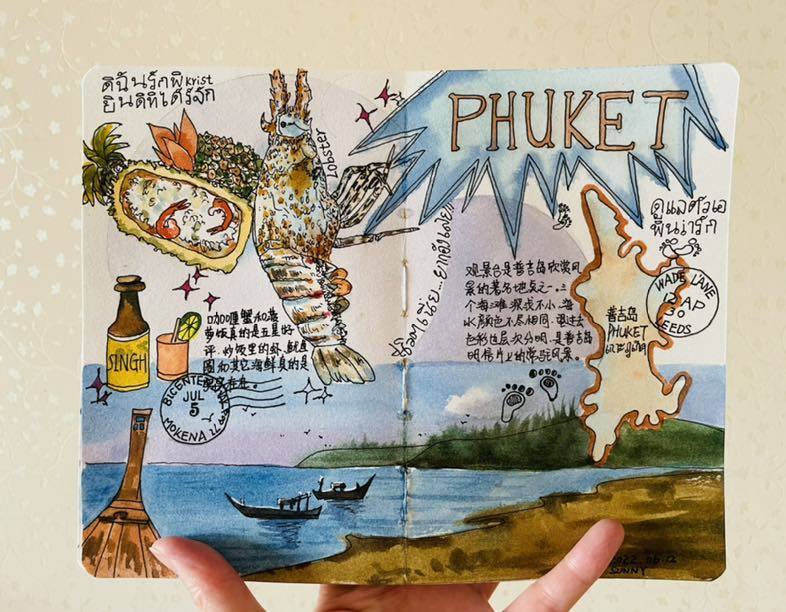 ดิฉันรักพี่ Krist
ยินดีที่ได้รู้จัก
Lobster
PHUKET
ดูแลตัวเอ
พี่น่ารัก
WADE LANE
12 AP
30
LEEDS
观景台是普吉岛欣赏风
景的著名地点之一。三
个海滩深浅不一，海
水颜色不尽相同，望过去
色彩也层次分明，是普吉岛
明信片上的常驻风景。
普吉岛
PHUKET
เกาะภูเก็ต
咖喱蟹和菠
萝饭真的是五星好
评，炒饭里的虾、鱿鱼
圈和其它海鲜真的是
SINGH
JUL
5
MOKENA
2022.06.12
SUNNY